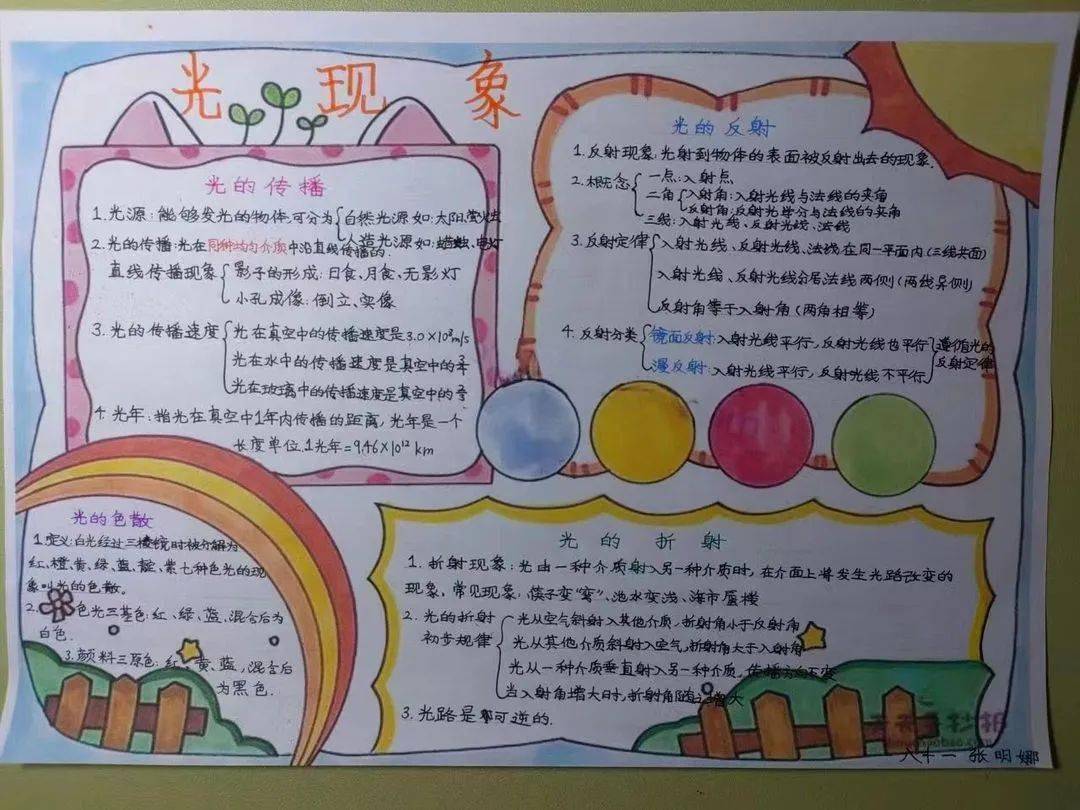 光现象
光的传播
1.光源:能够发光的物体.可分为 自然光源如:太阳、萤火虫
人造光源如:蜡烛、电灯
2.光的传播:光在同种均匀介质中沿直线传播的.
直线传播现象 影子的形成:日食、月食、无影灯
小孔成像:倒立、实像
3.光的传播速度 光在真空中的传播速度是3.0×10⁸m/s
光在水中的传播速度是真空中的
光在玻璃中的传播速度是真空中的
4.光年:指光在真空中1年内传播的距离,光年是一个
长度单位.1光年=9.46×10¹² km
光的反射
1.反射现象:光射到物体的表面被反射出去的现象.
2.概念 一点:入射点
二角 入射角:入射光线与法线的夹角
反射角:反射光线与法线的夹角
三线:入射光线、反射光线、法线
3.反射定律 入射光线、反射光线、法线在同一平面内(三线共面)
入射光线、反射光线分居法线两侧(两线异侧)
反射角等于入射角(两角相等)
4.反射分类 镜面反射:入射光线平行,反射光线也平行 遵循光的
漫反射:入射光线平行,反射光线不平行 反射定律
光的色散
1.定义:白光经过三棱镜时被分解为
红、橙、黄、绿、蓝、靛、紫七种色光的现
象叫光的色散。
2.色光三基色:红、绿、蓝、混合后为
白色.
3.颜料三原色:红、黄、蓝,混合后
为黑色.
光的折射
1.折射现象:光由一种介质射入另一种介质时,在介面上将发生光路改变的
现象,常见现象:筷子变“弯”、池水变浅、海市蜃楼
2.光的折射 光从空气斜射入其他介质,折射角小于反射角
初步规律 光从其他介质斜射入空气,折射角大于入射角
光从一种介质垂直射入另一种介质,传播方向不变
当入射角增大时,折射角随之增大
3.光路是可逆的.
八十一 张明娜